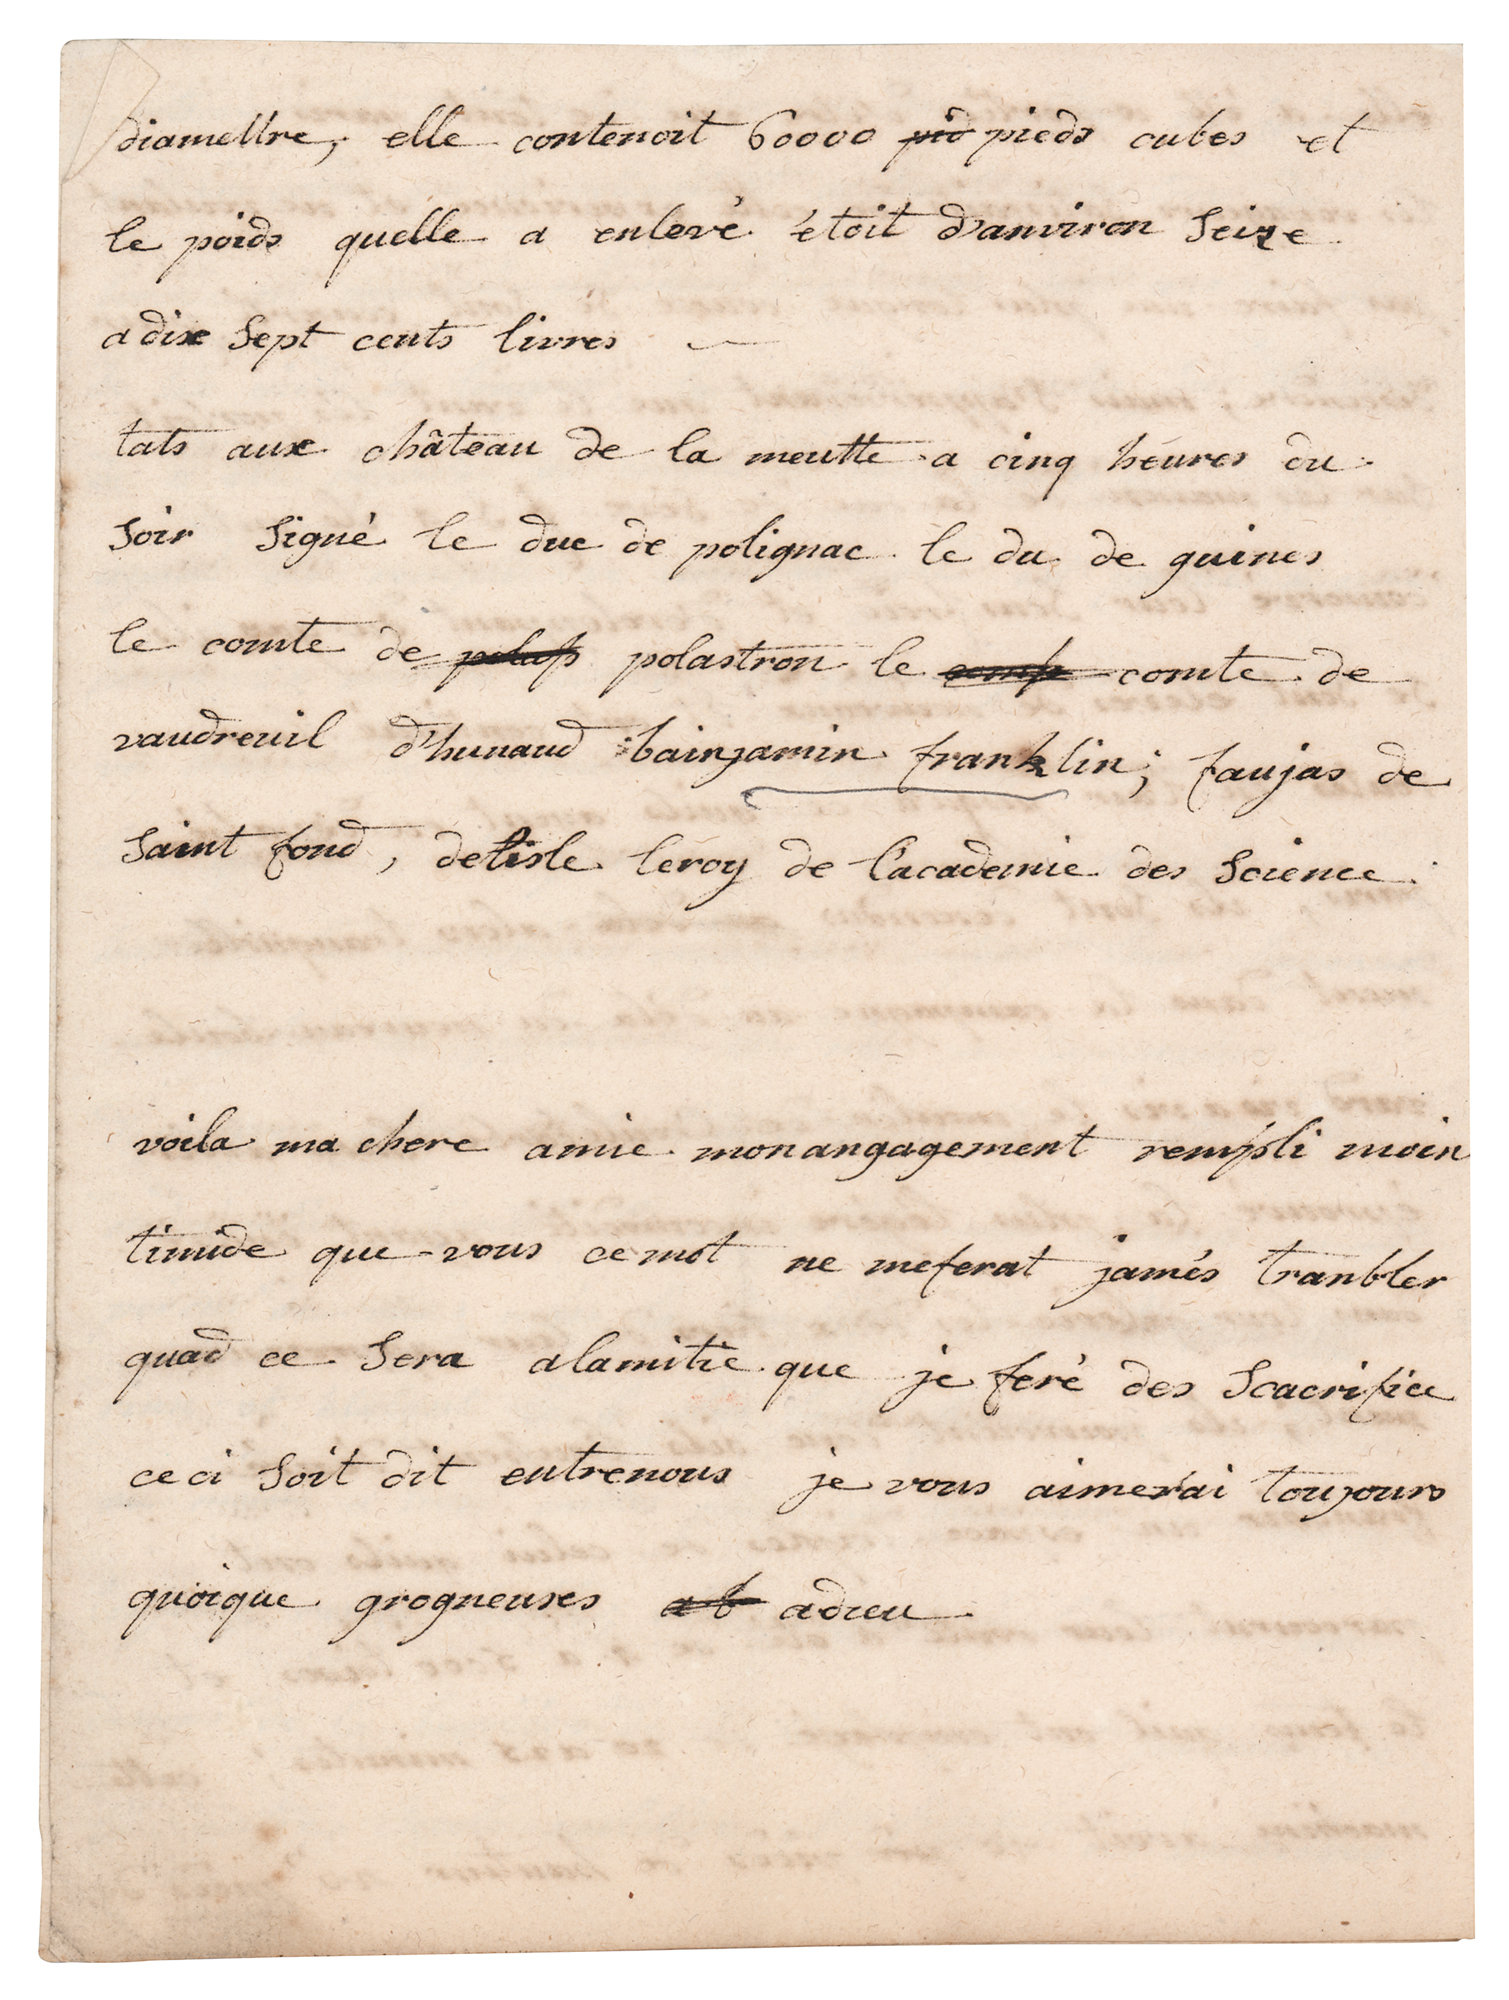 diamettre, elle contenoit 60000 pid pieds cubes et
le poids quelle a enlevé étoit d'anviron Seize
a dix Sept cents livres
tats aux château de la meutte a cinq heures du
Soir Signé le duc de polignac le du de guines
le comte de polastron le comp comte de
vaudreuil d'hunaud bainjamin franklin; faujas de
Saint fond, delisle leroy de l'academie des Science.
voila ma chere amie mon angagement rempli moin
timide que vous ce mot ne me ferat jamés tranbler
quad ce Sera a lamitié que je feré des Scacrifice
ce ci Soit dit entre nous je vous aimerai toujours
quoique grogneuses ab adieu